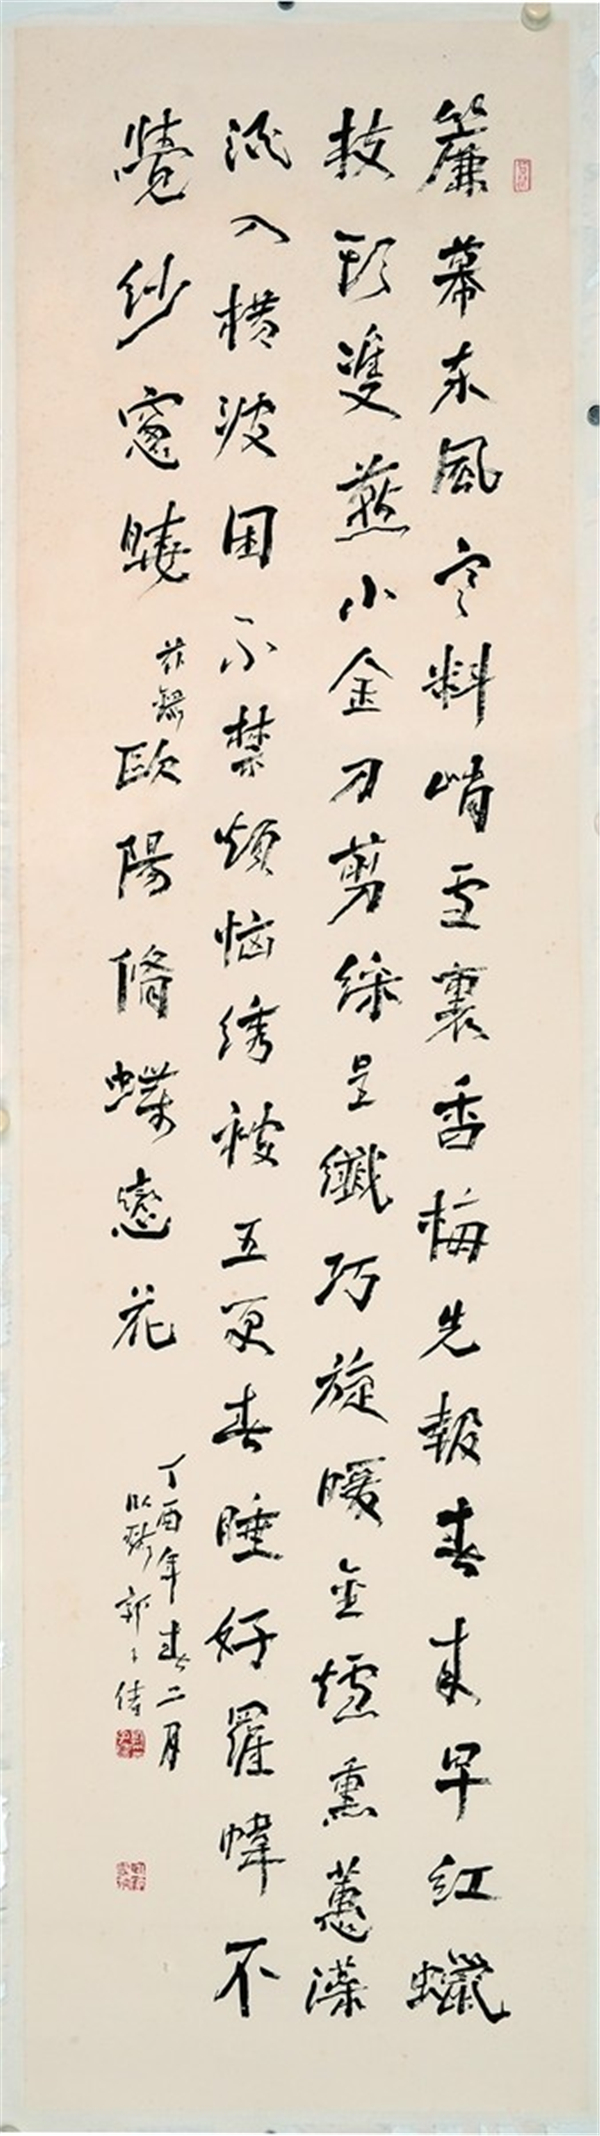 簾幕東風寒料峭雪裏香梅先報春來早紅蠟
枝頭雙燕小金刀剪綵呈纖巧旋暖金爐熏蕙藻
酒入橫波困不禁煩惱繡被五更春睡好羅幃不
覺紗窗曉 茲錄 歐陽脩蝶戀花
丁酉年春二月
郭